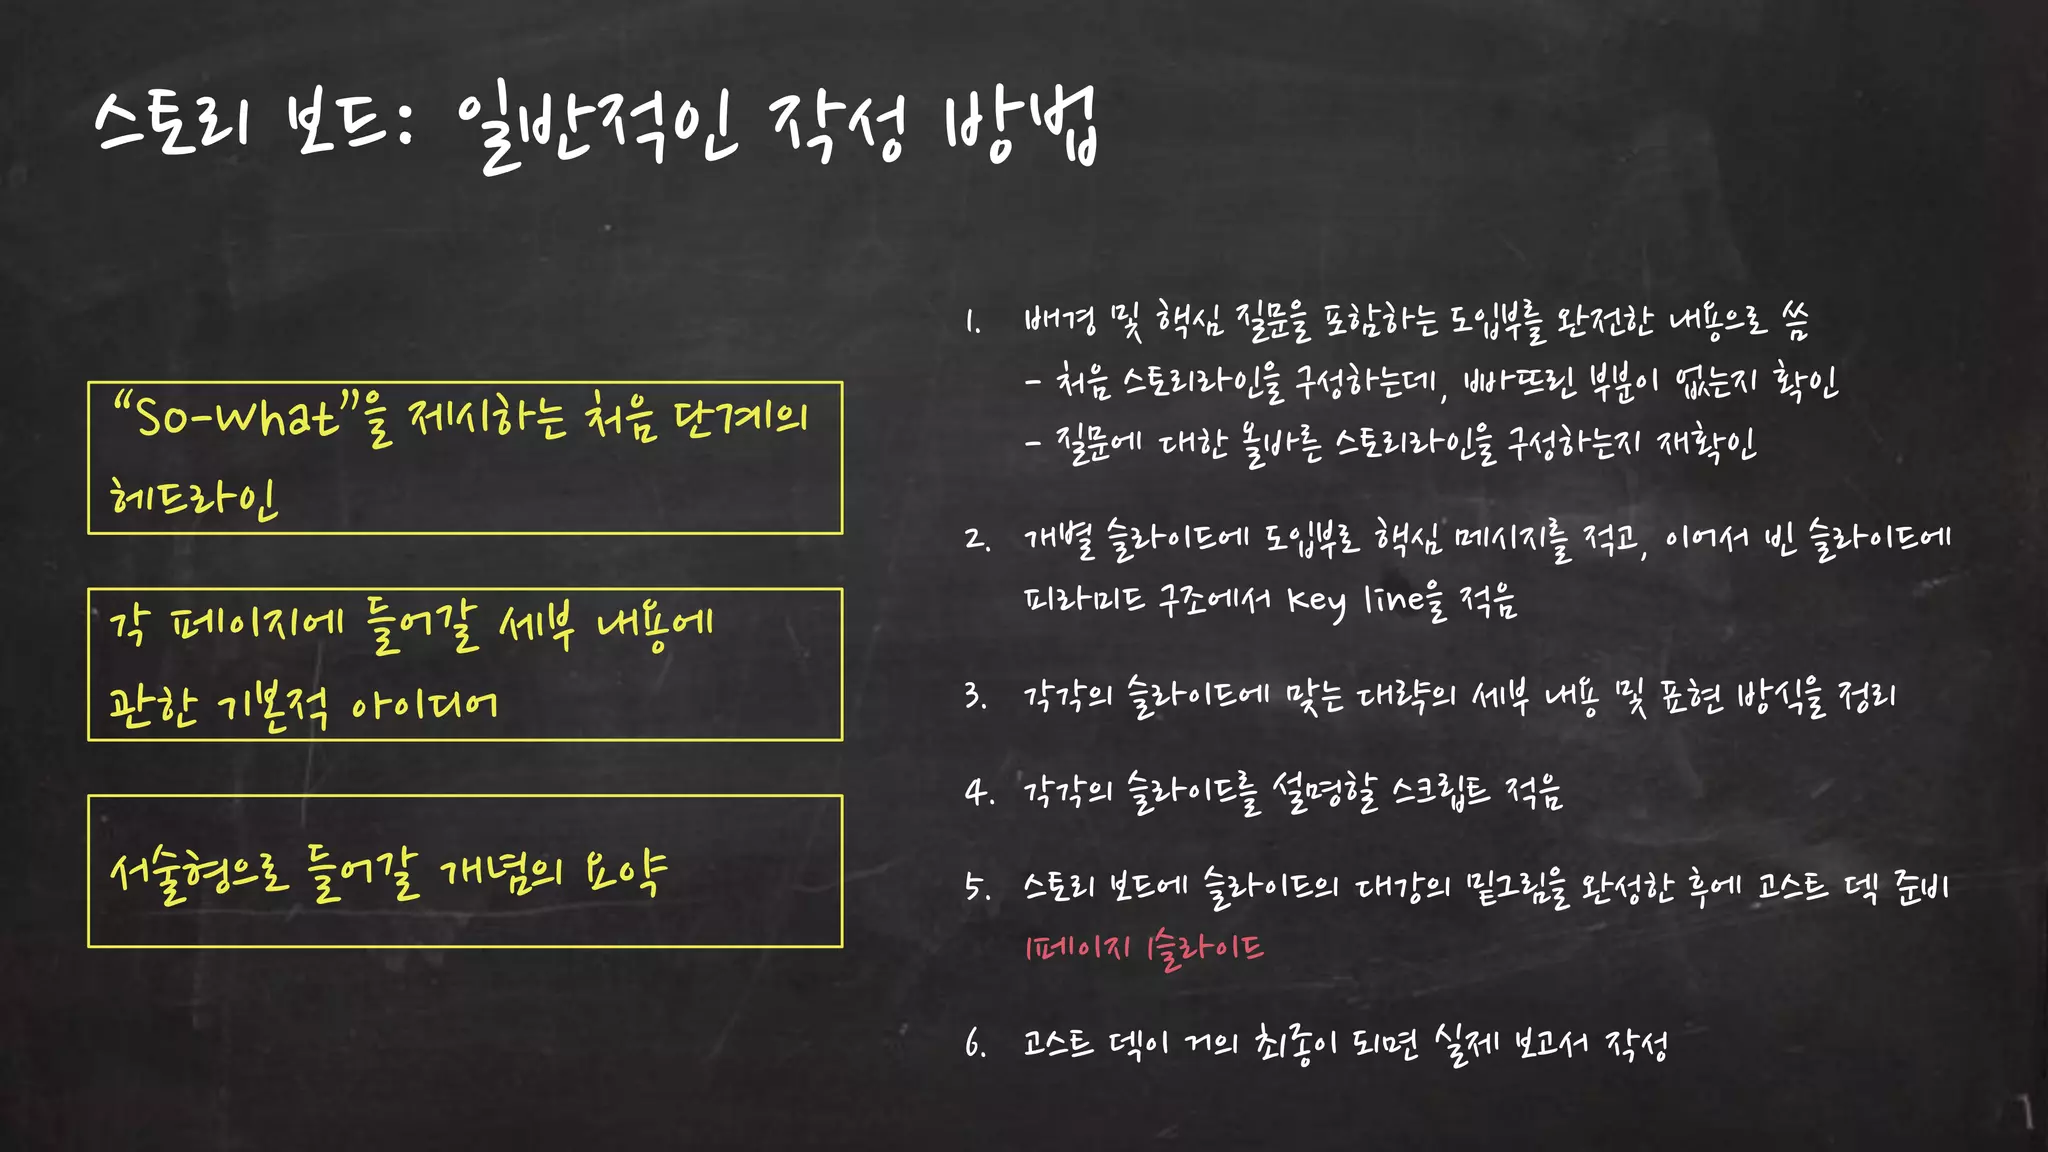 스토리 보드: 일반적인 작성 방법
“So-What”을 제시하는 처음 단계의
헤드라인
각 페이지에 들어갈 세부 내용에
관한 기본적 아이디어
서술형으로 들어갈 개념의 요약
1. 배경 및 핵심 질문을 포함하는 도입부를 완전한 내용으로 씀
- 처음 스토리라인을 구성하는데, 빠뜨린 부분이 없는지 확인
- 질문에 대한 올바른 스토리라인을 구성하는지 재확인
2. 개별 슬라이드에 도입부로 핵심 메시지를 적고, 이어서 빈 슬라이드에
피라미드 구조에서 Key line을 적음
3. 각각의 슬라이드에 맞는 대략의 세부 내용 및 표현 방식을 정리
4. 각각의 슬라이드를 설명할 스크립트 적음
5. 스토리 보드에 슬라이드의 대강의 밑그림을 완성한 후에 고스트 덱 준비
1페이지 1슬라이드
6. 고스트 덱이 거의 최종이 되면 실제 보고서 작성
1